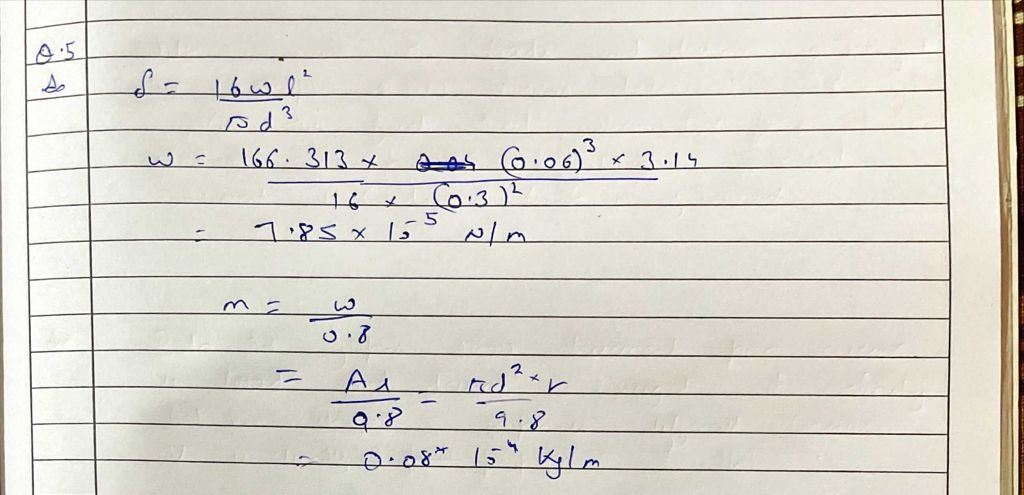 Q.5
δ = 16wl² / πd³
w = 166.313 × (0.06)³ × 3.14 / 16 × (0.3)²
= 7.85 × 10⁻⁵ N/m
m = w / 0.8
= As / 9.8 = πd² × r / 9.8
= 0.08 × 10⁻⁴ Kg/m